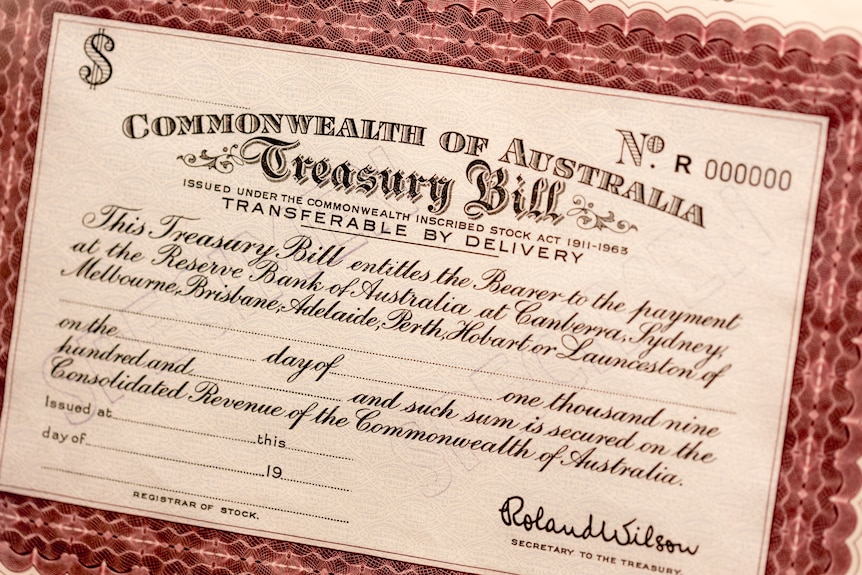 $
Nº. R 000000
COMMONWEALTH OF AUSTRALIA
Treasury Bill
ISSUED UNDER THE COMMONWEALTH INSCRIBED STOCK ACT 1911-1963
TRANSFERABLE BY DELIVERY
This Treasury Bill entitles the Bearer to the payment
at the Reserve Bank of Australia at Canberra, Sydney,
Melbourne, Brisbane, Adelaide, Perth, Hobart or Launceston of
on the day of one thousand nine
hundred and and such sum is secured on the
Consolidated Revenue of the Commonwealth of Australia.
Issued at this
day of 19
REGISTRAR OF STOCK.
Roland Wilson
SECRETARY TO THE TREASURY.